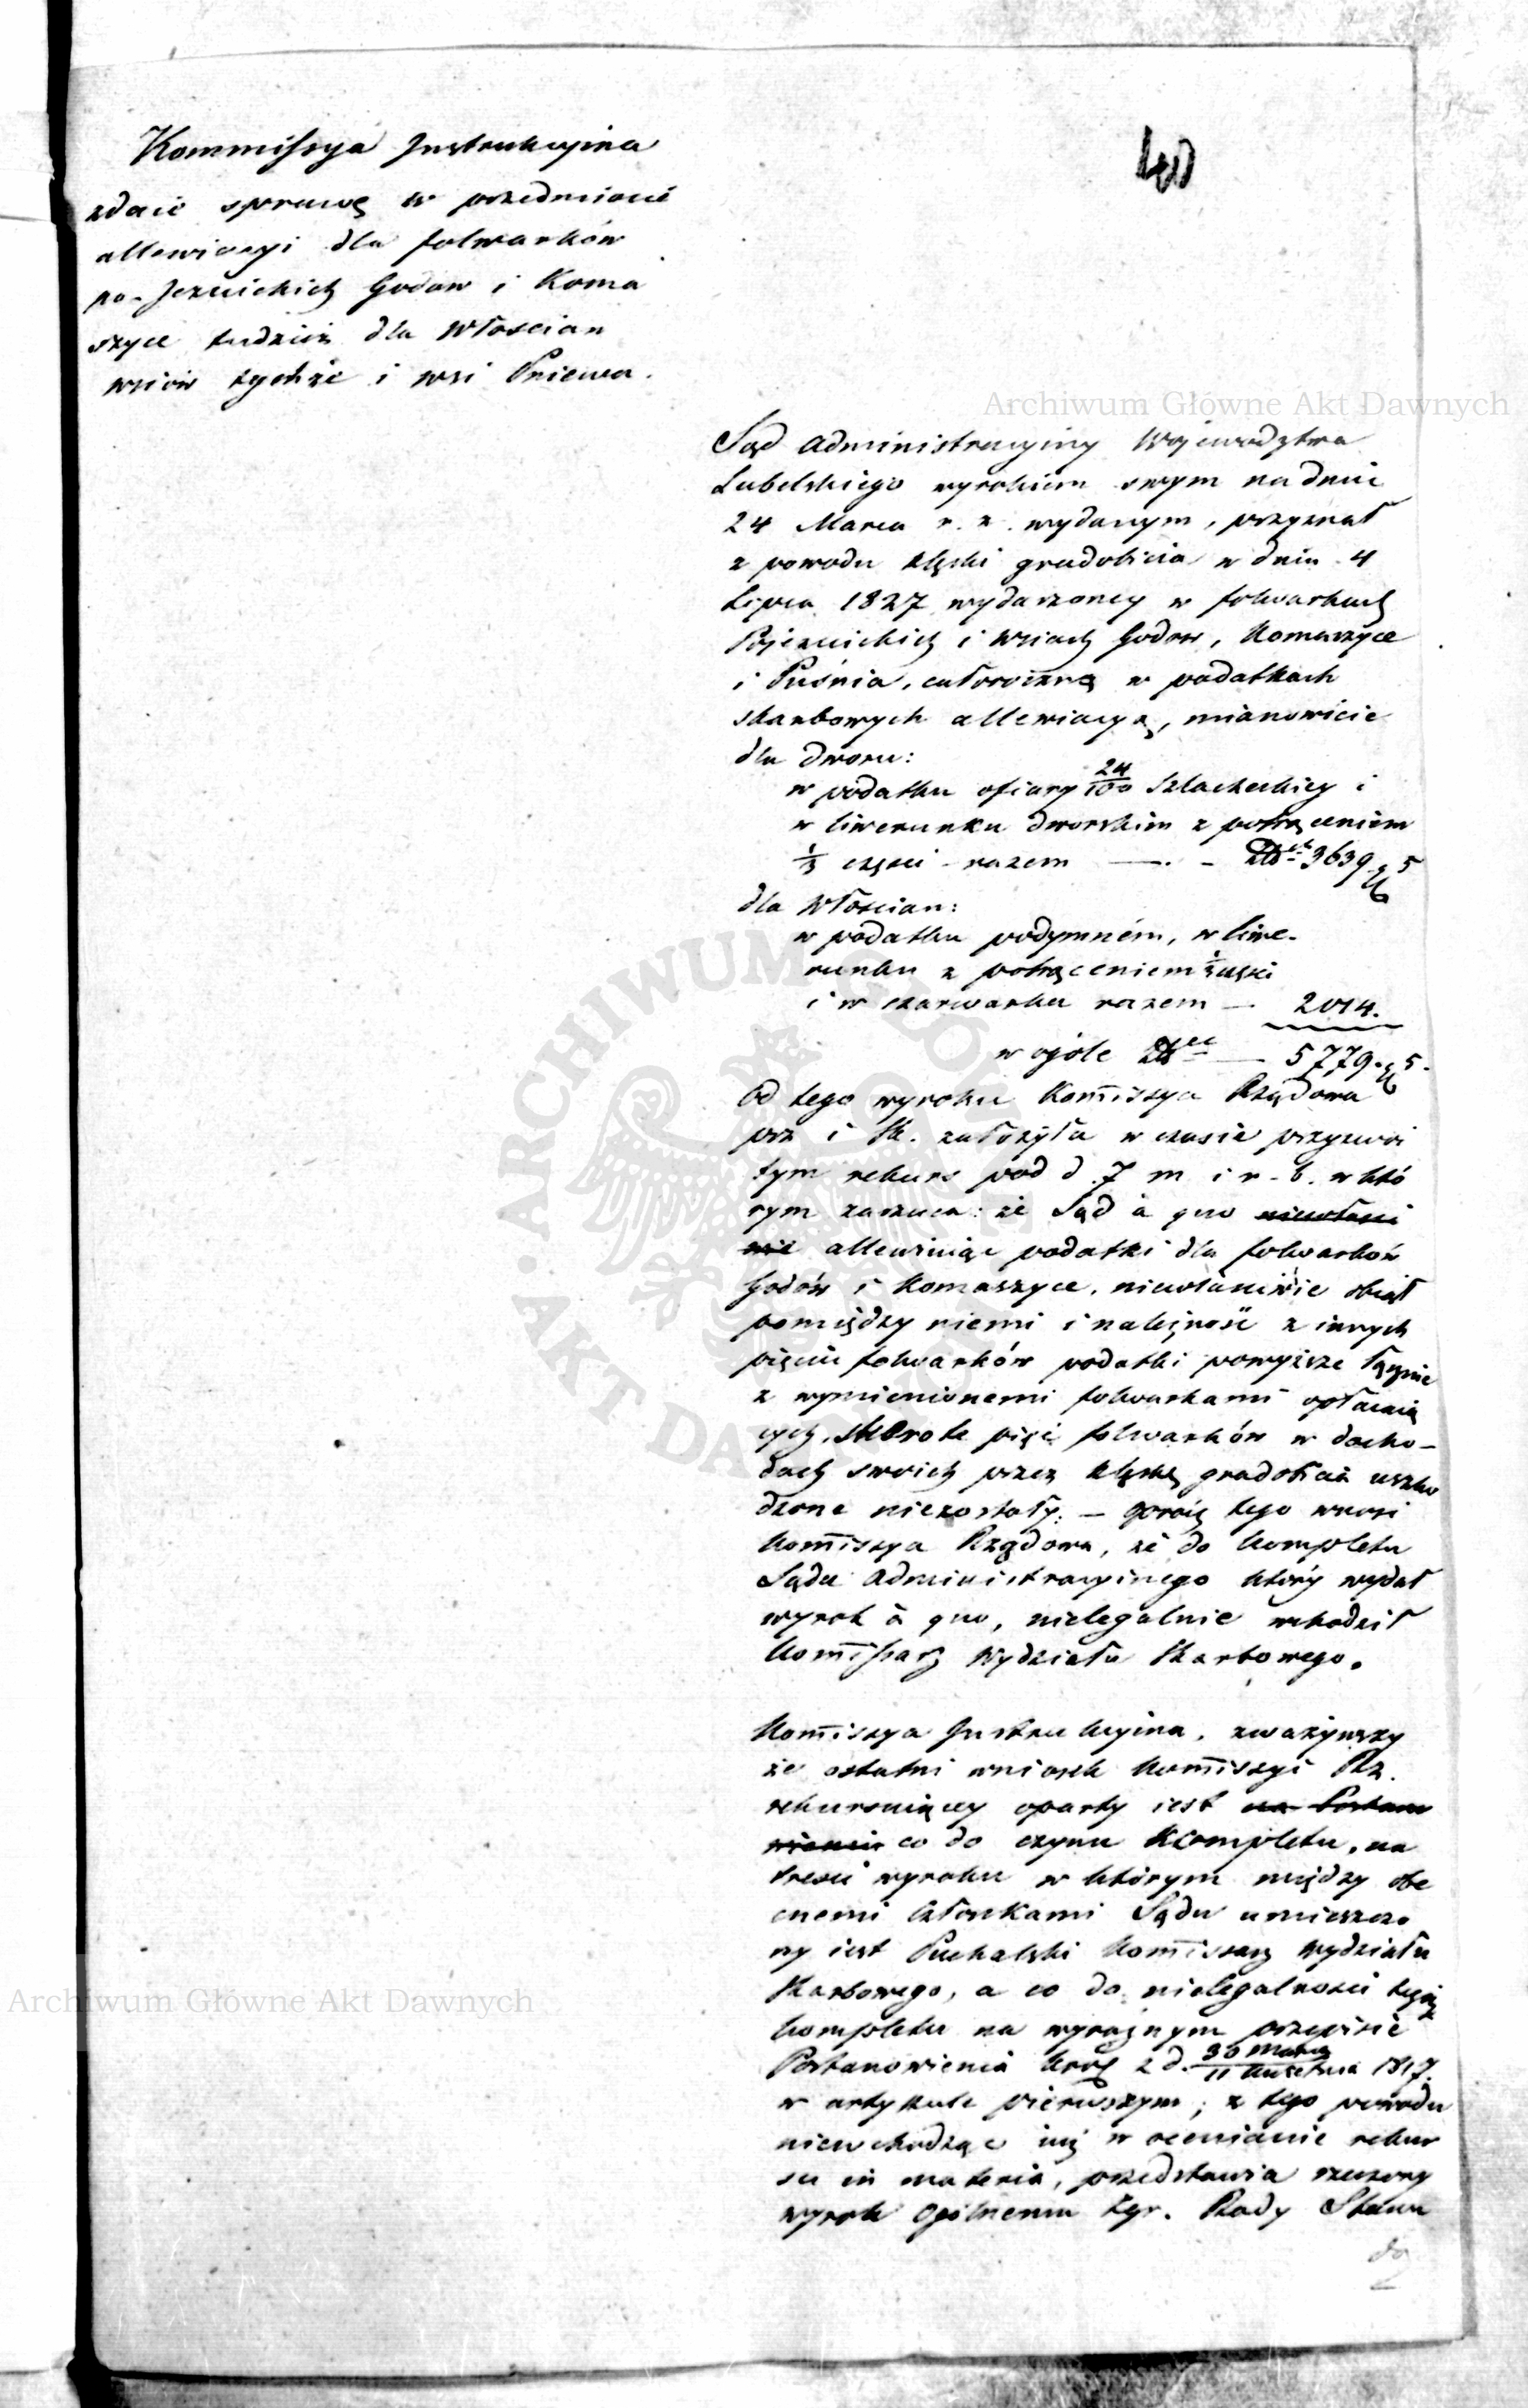 40
Kommissya Instrukcyina
zdaie sprawę w przedmiocie
allewiacyi dla folwarków
po-Jezuickich Godow i Koma
szyce tudzież dla Włoscian
wsiów tychże i wsi Pniewa.
Archiwum Główne Akt Dawnych
Sąd Administracyiny Wojewodztwa
Lubelskiego wyrokiem swym na dniu
24 Marca r. z. wydanym, przyznał
z powodu klęski gradobicia w dniu 4
Lipca 1827 wydarzoney w folwarkach
Pojezuickich i wsiach Godow, Komaszyce
i Puśnia, całoroczną w podatkach
skarbowych allewiacyą, mianowicie
dla dworu:
w podatku ofiary 24/100 Szlacheckiey i
w liwerunku dworskim z potrąceniem
1/3 części – razem — . – 3639 5
dla Włoscian:
w podatku podymném, w liwe-
runku z potrąceniem 1/3 części
i w szarwarku razem — 2014.
w ogóle — 5779. 5.
Od tego wyroku Kommissya Rządowa
prz i Sk. założyła w czasie przyzwoi
tym rekurs pod d. 7 m i r. b. w któ
rym zarzuca: że Sąd à quo niewłaści
wie allewiuiąc podatki dla folwarków
Godów i Komaszyce, niewłaściwie obiął
pomiędzy niemi i należność z innych
pięciu folwarków podatki powyższe łącznie
z wymienionemi folwarkami opłacaią
cych, skoro te pięć folwarków w docho-
dach swoich przez klęskę gradobicia uszko
dzone niezostały. – Oprócz tego wnosi
Kommissya Rządowa, że do kompletu
Sądu Administracyinego który wydał
wyrok à quo, nielegalnie wchodził
Kommissarz Wydziału Skarbowego.
Kommissya Instrukcyina, zważywszy
że ostatni wniosek Kommissyi Rz.
rekursuiącey oparty iest na Postano
wieniu co do czynu kompletu, na
tresci wyroku w którym między obe
cnemi Członkami Sądu umieszczo
ny iest Puchalski Kommissarz Wydziału
Skarbowego, a co do nielegalności tegoż
kompletu na wyraźnym przepisie
Postanowienia Król z d. 30 Marca / 11 Kwietnia 1817.
w artykule pierwszym; z tego powodu
niewchodząc iuż w ocenianie rekur
su in materia, przedstawia rzeczony
wyrok Ogólnemu Zgr. Rady Stanu
do
Archiwum Główne Akt Dawnych
ARCHIWUM GŁÓWNE AKT DAWNYCH